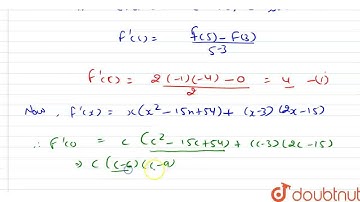 f'(c) = f(5) - f(3) / 5-3
f'(c) = 2(-1)(-4) - 0 / 2 = 4 -(i)
Now, f'(x) = x(x² - 15x + 54) + (x-3)(2x-15)
∴ f'(c) = c (c² - 15c + 54) + (c-3)(2c-15)
⇒ c (c-6)(c-9)
doubtnut